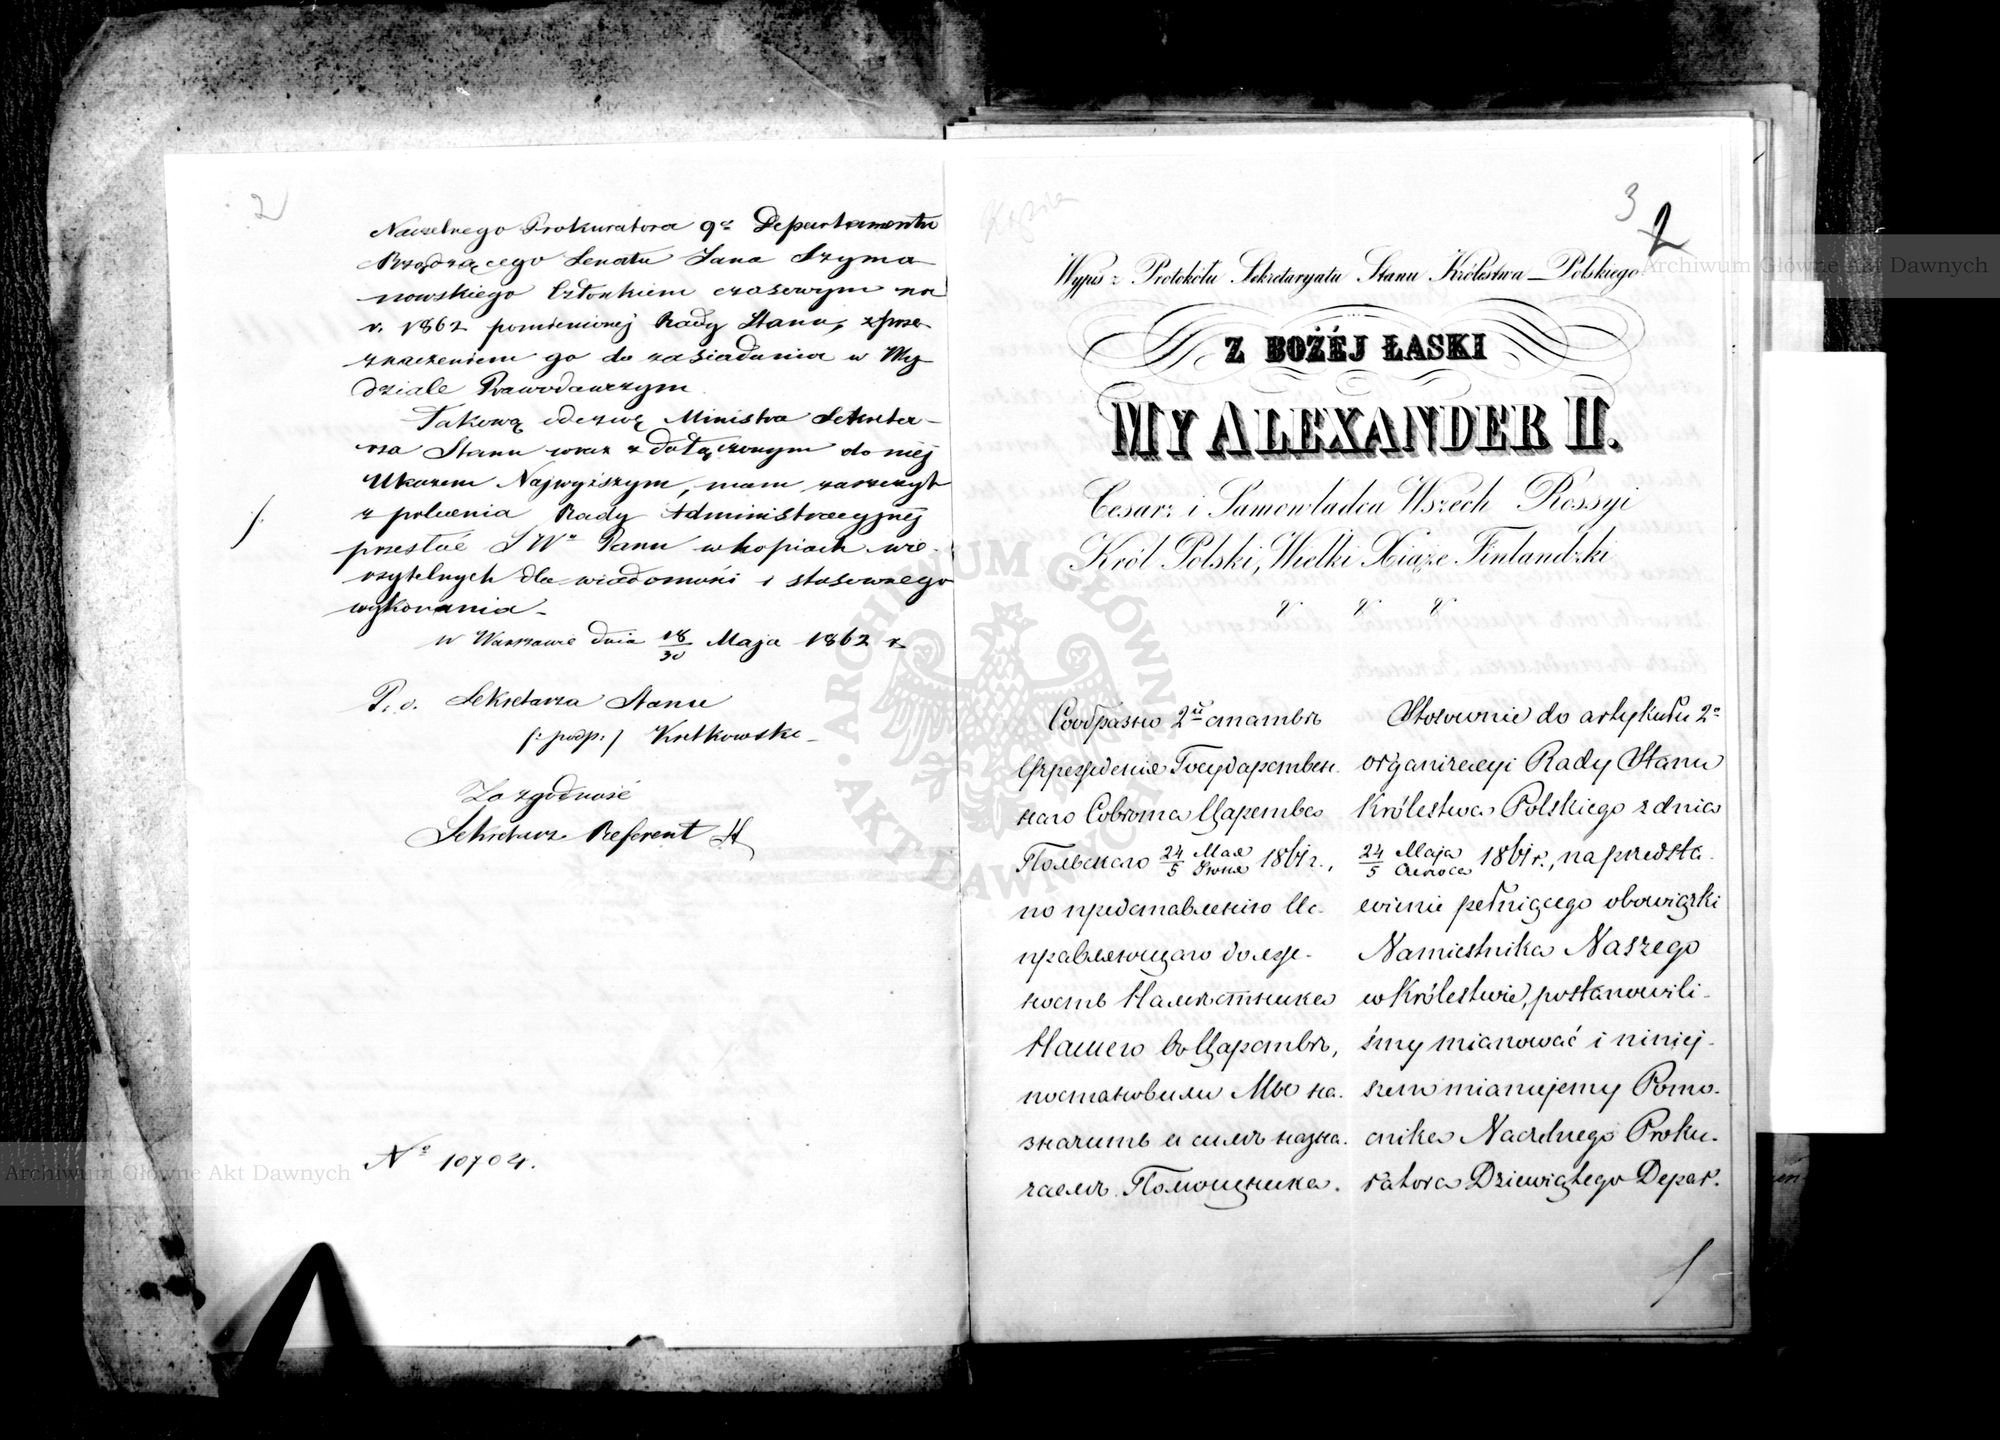 2
Naczelnego Prokuratora 9o Departamentu
Rządzącego Senatu Jana Szyma
nowskiego Członkiem czasowym na
r. 1862 pomienionej Rady Stanu, z prze-
znaczeniem go do zasiadania w Wy
dziale Prawodawczym.
Takową odezwę Ministra Sekreta-
rza Stanu wraz z dołączonym do niej
Ukazem Najwyższym, mam zaszczyt
z polecenia Rady Administracyjnej
przesłać JWu Panu w kopiach wie-
rzytelnych dla wiadomości i stosownego
wykonania.
w Warszawie dnia 18/30 Maja 1862 r
P. o. Sekretarza Stanu
/: podp: / Kretkowski
Za zgodność
Sekretarz Referent
No 10704.
3
2
Kopia
Wypis z Protokółu Sekretaryatu Stanu Królestwa Polskiego.
Z BOŻÉJ ŁASKI
MY ALEXANDER II.
Cesarz i Samowładca Wszech Rossyi
Król Polski, Wielki Xiąże Finlandzki
Сообразно 2й статьѣ
Учрежденія Государствен-
наго Совѣта Царства
Польскаго 24 Мая/5 Іюня 1861 г.,
по представленію Ис-
правляющаго долж-
ность Намѣстника
Нашего въ Царствѣ,
постановили Мы на-
значить и симъ назна-
чаемъ Помощника
Stosownie do artykułu 2o
organizacyi Rady Stanu
Królestwa Polskiego z dnia
24 Maja/5 Czerwca 1861 r., na przedsta-
wienie pełniącego obowiązki
Namiestnika Naszego
w Królestwie, postanowili-
śmy mianować i niniej-
szem mianujemy Pomo-
cnika Naczelnego Proku-
ratora Dziewiątego Depar-
ARCHIWUM GŁÓWNE AKT DAWNYCH
Archiwum Główne Akt Dawnych
Archiwum Główne Akt Dawnych